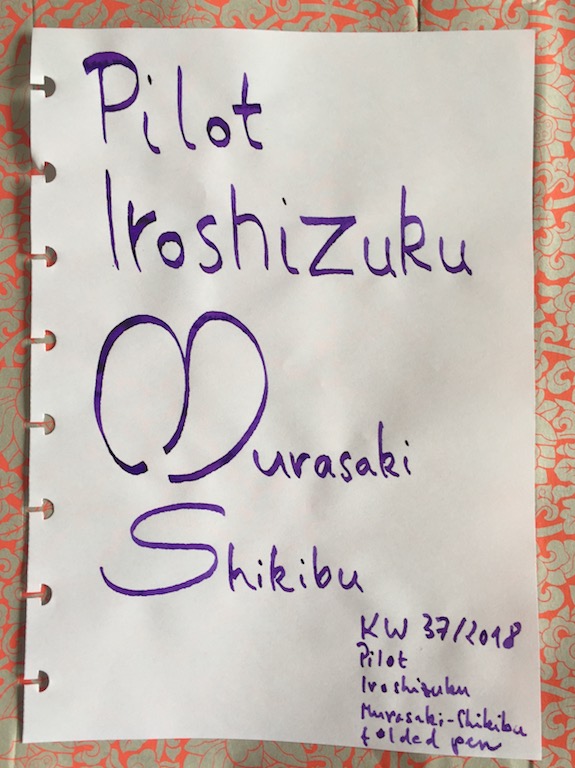 Pilot
Iroshizuku
Murasaki
Shikibu
KW 37/2018
Pilot
Iroshizuku
Murasaki-Shikibu
folded pen